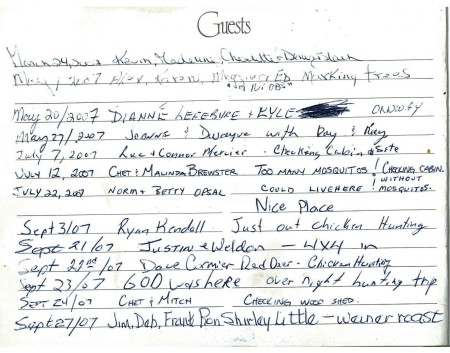 Guests
March 24, 2007 Kevin, Madeline,
May 1 2007 Marking trees
May 20/2007 DIANNE LEFEBURE + KYLE
May 27/2007 JOANNE & Dwayne with Day & Kay
July 7, 2007 Luc + Connor Mercier - Checking Cabin & Site
JULY 12, 2007 CHET & MALINDA BREWSTER TOO MANY MOSQUITOS! CHECKING CABIN.
JULY 22, 2007 NORM & BETTY OPSAL COULD LIVE HERE! WITHOUT MOSQUITOS.
Nice Place
Sept 3/07 Ryan Kendall Just out chicken Hunting
Sept 21/07 JUSTIN & Weldon - 4x4 in
Sept 22nd/07 Dave Cormier Red Deer - Chicken Hunting
Sept 23/07 GOD was here over night hunting trip
SEPT 24/07 CHET & MITCH CHECKING WOOD SHED.
Sept 27/07 Jim, Deb, Frank, Ron Shirley Little - weiner roast